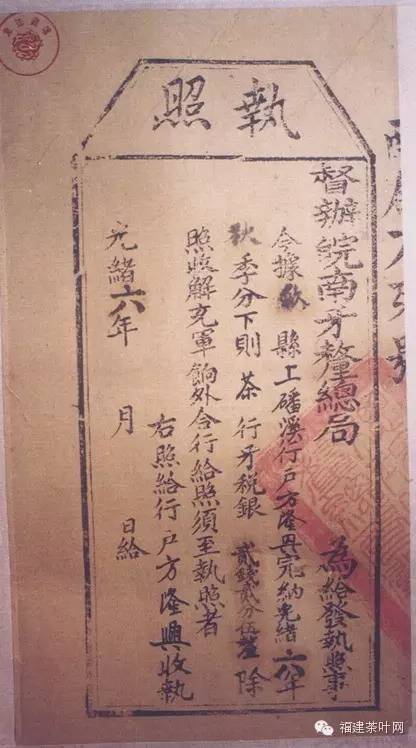 執照
督辦皖南牙釐總局　為給發執照事
今據歙縣上磻溪行戶方隆興完納光緒六年
秋季分下則茶行牙稅銀貳錢貳分伍釐除
照收解充軍餉外合行給照須至執照者
右照給行戶方隆興收執
光緒六年　月　日給
福建茶叶网